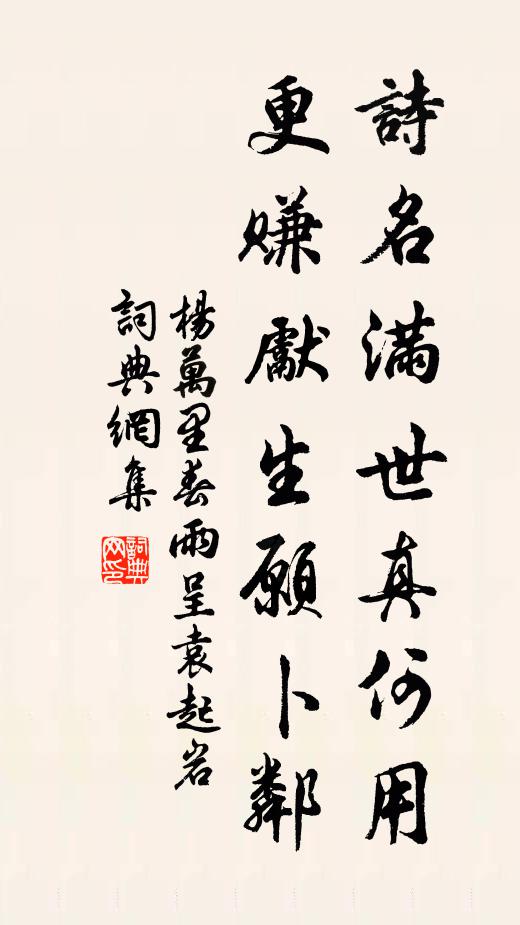 詩名滿世真何用
更賺獻生願卜鄰
楊萬里春雨呈袁起岩
詞典網集
詞典网印